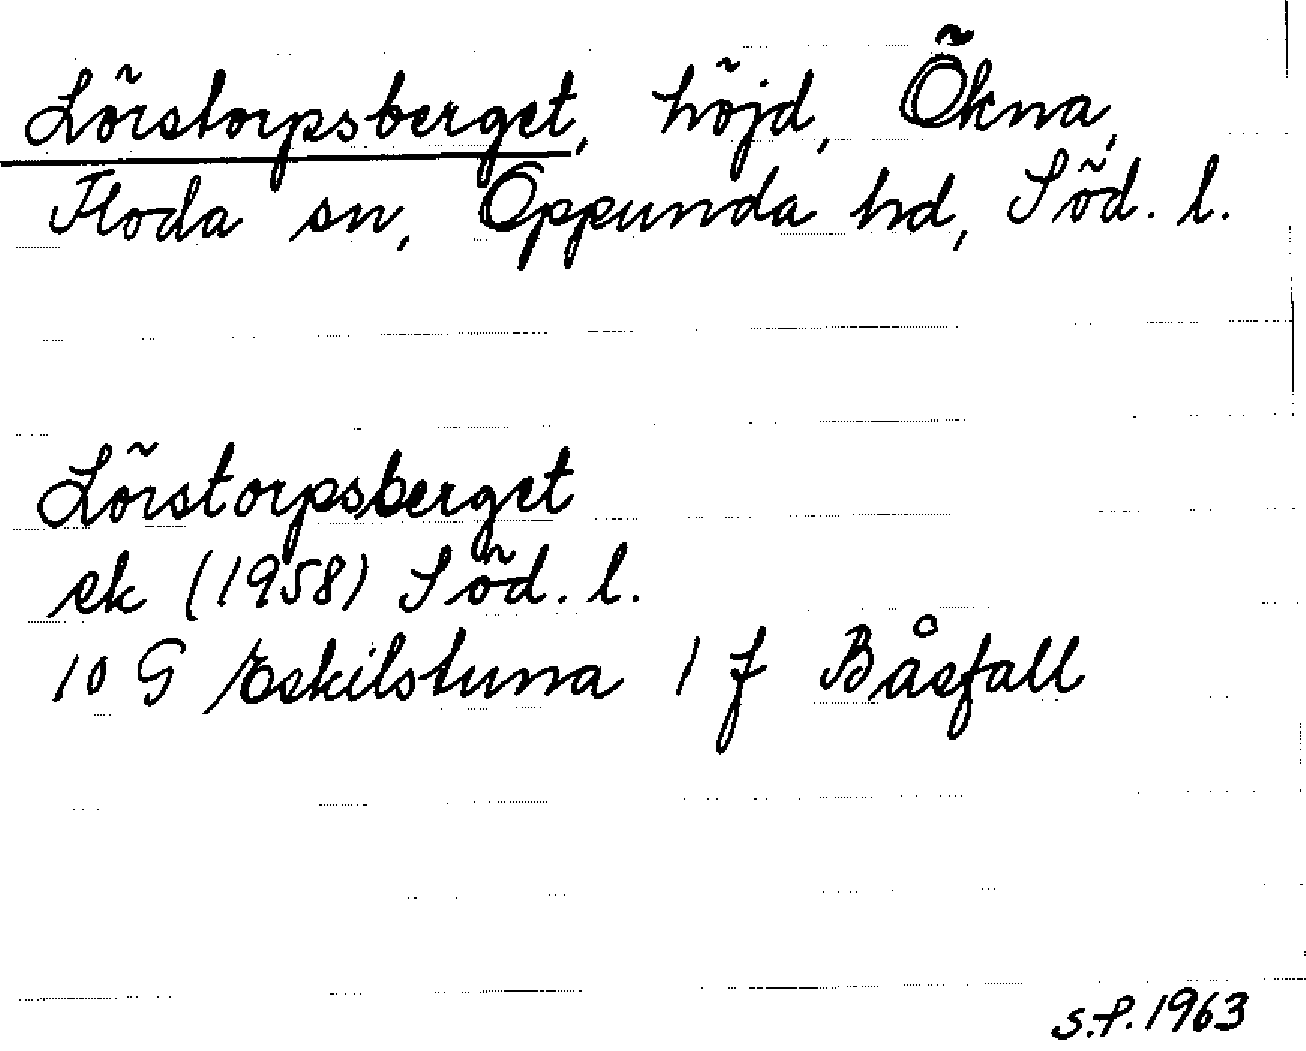 Lörstorpsberget, höjd, Ökna,
Floda sn, Oppunda hd, Söd. l.
Lörstorpsberget
ek (1958) Söd. l.
10 G Eskilstuna 1 f Båsfall
S.P. 1963